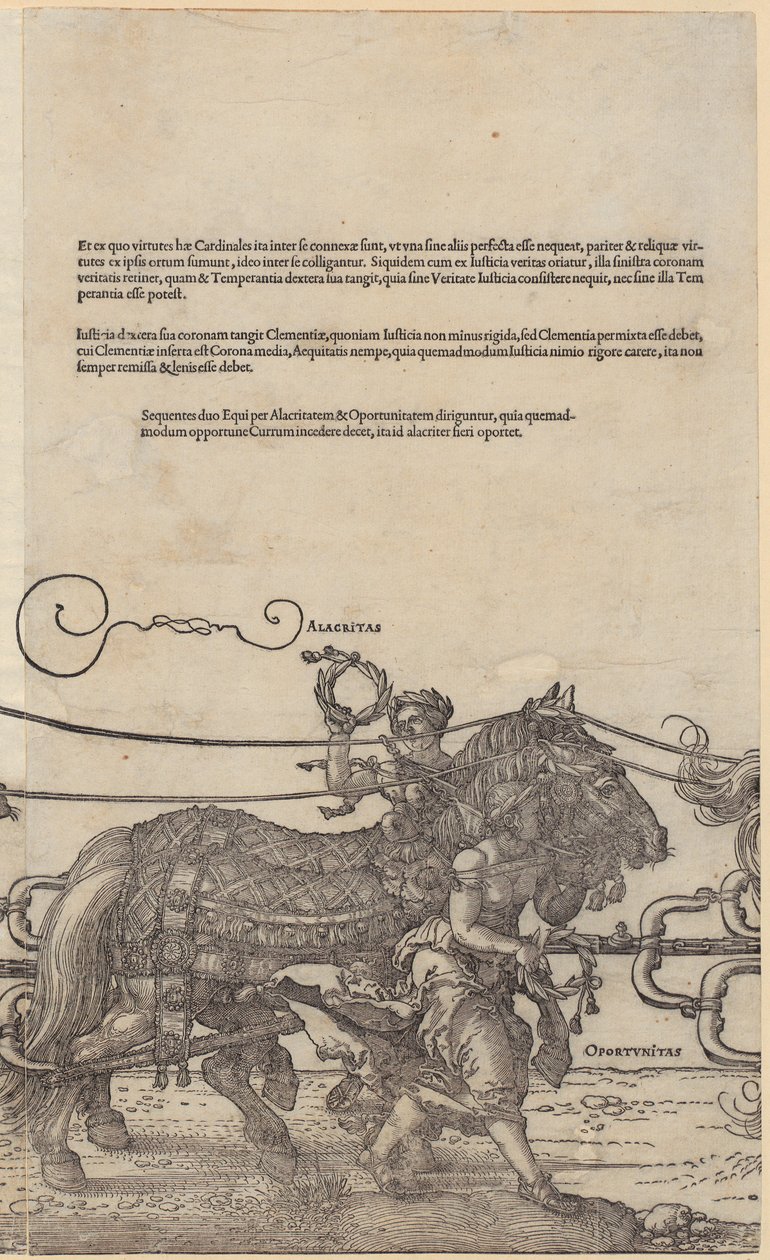 Et ex quo virtutes hæ Cardinales ita inter ſe connexæ ſunt, vt vna ſine aliis perfecta eſſe nequeat, pariter & reliquæ vir-
tutes ex ipſis ortum ſumunt, ideo inter ſe colligantur. Siquidem cum ex Iuſticia veritas oriatur, illa ſiniſtra coronam
veritatis retinet, quam & Temperantia dextera ſua tangit, quia ſine Veritate Iuſticia conſiſtere nequit, nec ſine illa Tem
perantia eſſe poteſt.
Iuſticia dextera ſua coronam tangit Clementiæ, quoniam Iuſticia non minus rigida, ſed Clementia permixta eſſe debet,
cui Clementiæ inſerta eſt Corona media, Aequitatis nempe, quia quemadmodum Iuſticia nimio rigore carere, ita non
ſemper remiſſa & lenis eſſe debet.
Sequentes duo Equi per Alacritatem & Oportunitatem diriguntur, quia quemad-
modum opportune Currum incedere decet, ita id alacriter fieri oportet.
ALACRITAS
OPORTVNITAS